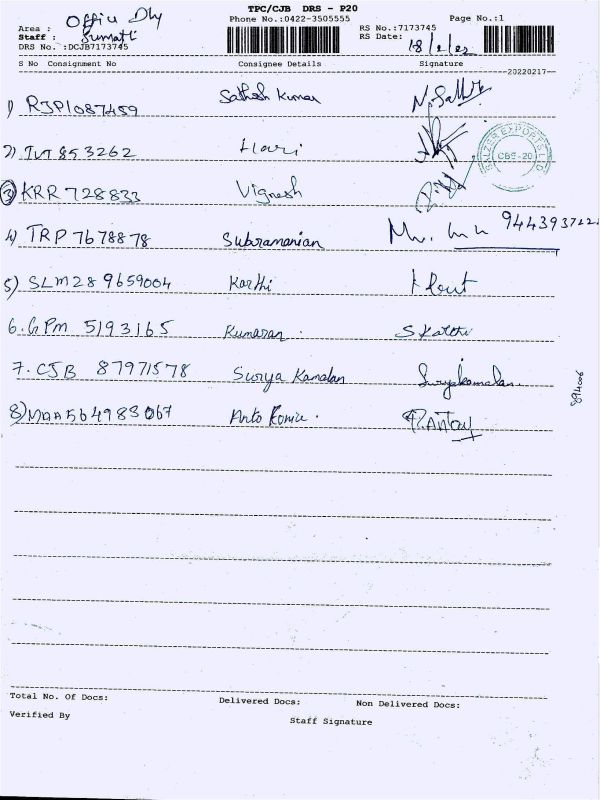 TPC/CJB DRS - P20
Area : Office Dly Phone No.:0422-3505555 RS No.:7173745 Page No.:1
Staff : Sumati RS Date: 18/2/22
DRS No. :DCJB7173745
S No Consignment No Consignee Details Signature
20220217
1) RJP1087459 Sathesh Kumar N. Sathik
2) TVT 853262 Hari
SALZER EXPORTS LTD
CBE-20
3) KRR 728833 Vignesh
4) TRP 7678878 Subramanian 9443937222
5) SLM289659004 Karthi
6. GPM 5193165 Kumaran. S Karthi
7. CJB 87971578 Surya Kamalan Suryakamalan.
8) MAA564983067 Anto R. Antony
8914006
Total No. Of Docs: Delivered Docs: Non Delivered Docs:
Verified By Staff Signature